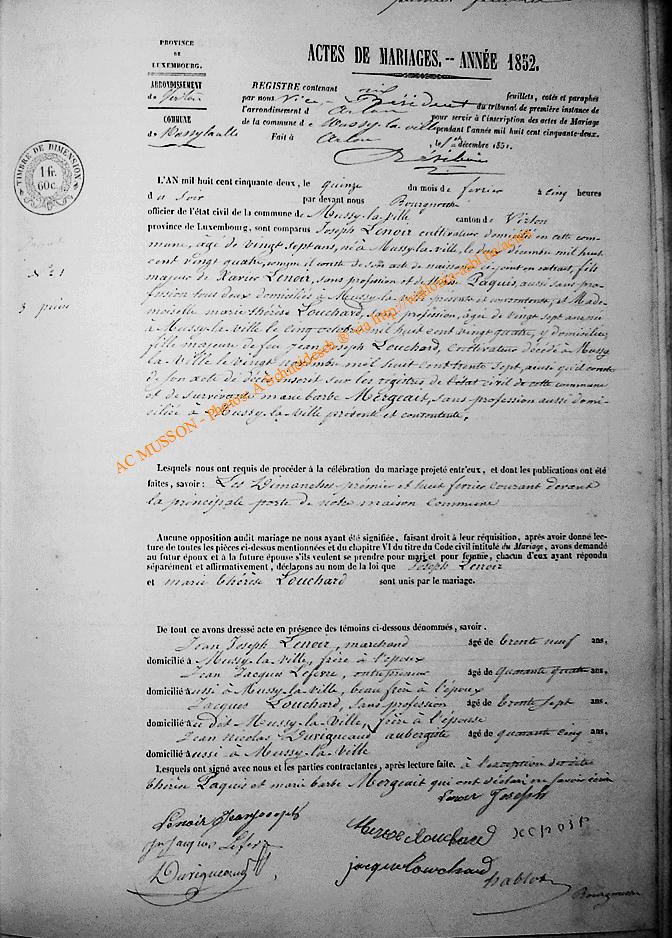 PROVINCE
DE
LUXEMBOURG.
ARRONDISSEMENT
de Virton
COMMUNE
de Mussy la ville
TIMBRE DE DIMENSION
1 fr.
60 c.
N° 1
ACTES DE MARIAGES. -- ANNÉE 1852.
REGISTRE contenant feuillets, cotés et paraphés
par nous Vice-Président du tribunal de première instance de
l'arrondissement d'Arlon pour servir à l'inscription des actes de Mariage
de la commune de Mussy-la-ville pendant l'année mil huit cent cinquante-deux.
Fait à Arlon décembre 1851.
L'AN mil huit cent cinquante deux, le quinze du mois de fevrier à cinq heures
du soir par devant nous Bourgmestre
officier de l'état civil de la commune de Mussy-la-ville canton de Virton
province de Luxembourg, sont comparus Joseph Lenoir cultivateur domicilié en cette com-
mune, âgé de vingt sept ans, né à Mussy-la-ville, le deux mil huit
cent vingt quatre, comme il conste de son acte de naissance ci joint en extrait, fils
majeur de Xavier Lenoir, sans profession et de Paquis, aussi sans pro-
fession tout deux domiciliés à Mussy-la-ville présents et consentants, et Made-
moiselle marie thérèse Louchard, sans profession, âgée de vingt sept ans née
à Mussy-la-ville le cinq octobre mil huit cent vingt quatre, y domiciliée,
fille majeure de feu Jean Joseph Louchard, cultivateur décédé à Mussy-
la-ville le vingt novembre mil huit cent trente sept, ainsi qu'il conste
de son acte de décès inscrit sur les registres de l'état civil de cette commune
et de survivante marie barbe Mergeait, sans profession aussi domi-
ciliée à Mussy-la-ville présente et consentante,
Lesquels nous ont requis de procéder à la célébration du mariage projeté entr'eux, et dont les publications ont été
faites, savoir : Les Dimanches prémier et huit fevrier courant devant
la principale porte de notre maison commune
Aucune opposition audit mariage ne nous ayant été signifiée, faisant droit à leur réquisition, après avoir donné lec-
ture de toutes les pièces ci-dessus mentionnées et du chapitre VI du titre du Code civil intitulé du Mariage, avons demandé
au futur époux et à la future épouse s'ils veulent se prendre pour mari et pour femme, chacun d'eux ayant répondu
séparément et affirmativement, déclarons au nom de la loi que Joseph Lenoir
et marie thérèse Louchard sont unis par le mariage.
De tout ce avons dressé acte en présence des témoins ci-dessous dénommés, savoir :
Jean Joseph Lenoir, marchand âgé de trente neuf ans,
domicilié à Mussy-la-ville, frère à l'époux
Jean Jacques Lefevre, entrepreneur âgé de quarante quatre ans,
domicilié aussi à Mussy-la-ville, beau frère à l'époux
Jacques Louchard, sans profession âgé de trente sept ans,
domicilié au dit Mussy-la-ville, frère à l'épouse
Jean Nicolas Duvigneaud aubergiste âgé de quarante cinq ans,
domicilié aussi à Mussy-la-ville
Lesquels ont signé avec nous et les parties contractantes, après lecture faite. à l'exception de
thérèse Paquis et marie barbe Mergeait qui ont déclaré ne savoir écrire
Lenoir Joseph
Lenoir Jean Joseph
Jacques Lefevre
Duvigneaud
jacque Louchard
Bourgmestre
AC MUSSON - Photos: A Schmidesch ® via http://